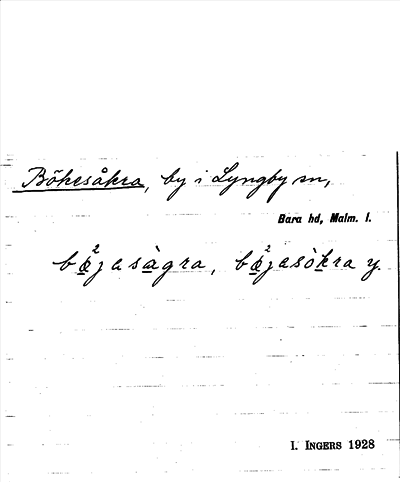 Bökesåkra, by i Lyngby sn,
Bara hd, Malm. l.
bǿ²jasàgra, bǿ²jasòkra y.
I. INGERS 1928